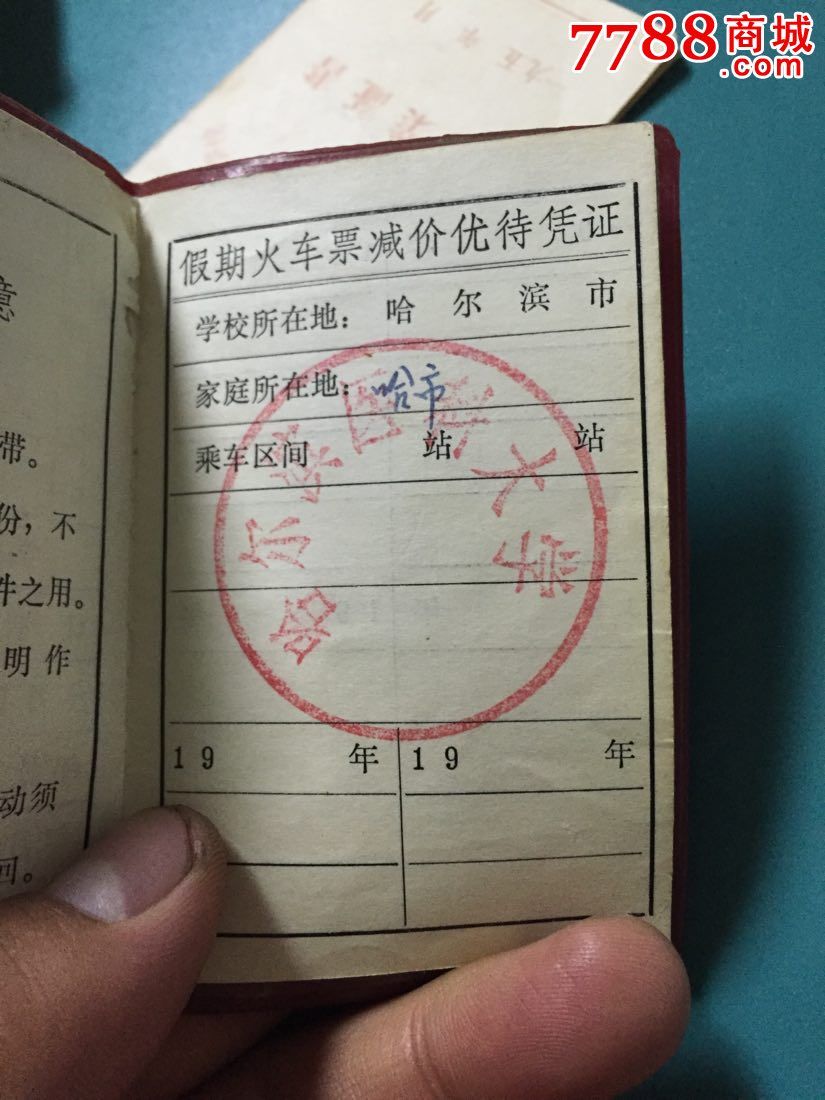 7788商城
.com
九五 年 月
意
带。
份，不
件之用。
明作
动须
回。
假期火车票减价优待凭证
学校所在地：哈尔滨市
家庭所在地：哈市
乘车区间 站 站
哈尔滨医科大学
19 年 19 年